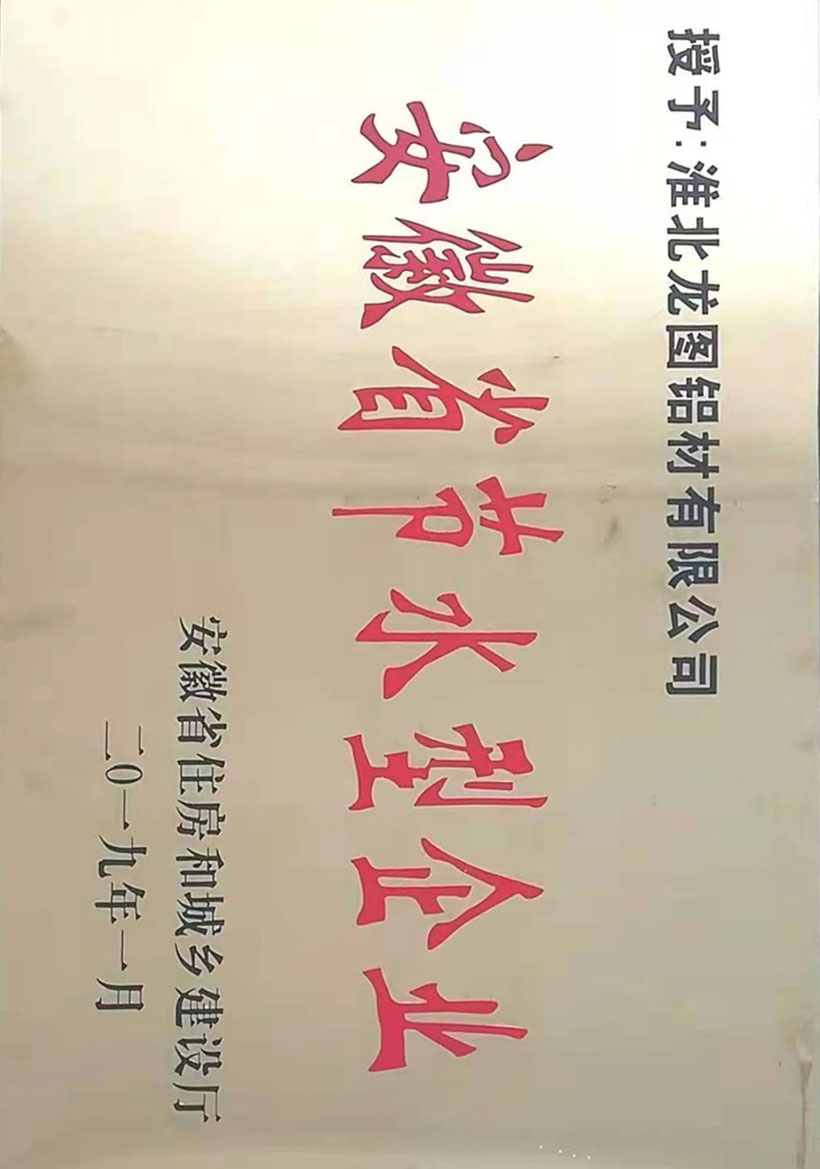 授予:淮北龙图铝材有限公司
安徽省节水型企业
安徽省住房和城乡建设厅
二0一九年一月